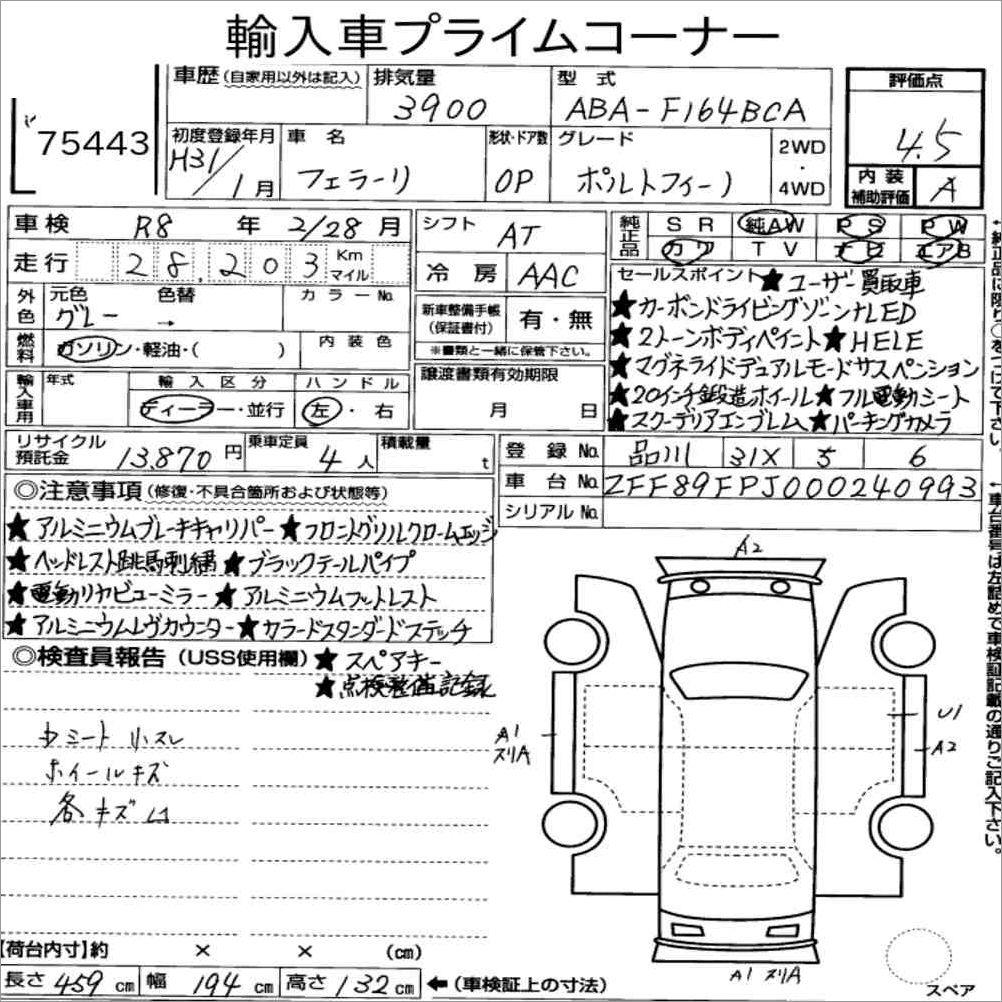 輸入車プライムコーナー
75443
車歴(自家用以外は記入)
排気量 3900
型式 ABA-F164BCA
評価点 4.5
内装補助評価 A
初度登録年月 H31/1月
車名 フェラーリ
形状・ドア数 OP
グレード ポルトフィーノ
2WD・4WD
車検 R8年 2/28月
走行 28,203 Km マイル
外色 元色 グレー 色替 → カラーNo.
燃料 ガソリン・軽油・( ) 内装色
輸入車用 年式 輸入区分 ディーラー・並行 ハンドル 左・右
シフト AT
冷房 AAC
新車整備手帳(保証書付) 有・無
※書類と一緒に保管下さい。
譲渡書類有効期限 月 日
純正品 SR 純AW PS PW
カワ TV ナビ エアB
セールスポイント ★ユーザー買取車
★カーボンドライビングゾーン+LED
★2トーンボディペイント★HELE
★マグネライドデュアルモードサスペンション
★20インチ鍛造ホイール★フル電動シート
★スクーデリアエンブレム★パーキングカメラ
リサイクル預託金 13,870円 乗車定員 4人 積載量 t
登録No. 品川 31X 5 6
車台No. ZFF89FPJ000240993
シリアルNo.
◎注意事項(修復・不具合箇所および状態等)
★アルミニウムブレーキキャリパー★フロントグリルクロームエッジ
★ヘッドレスト跳馬刺繍★ブラックテールパイプ
★電動リヤビューミラー★アルミニウムフットレスト
★アルミニウムレヴカウンター★カラードスタンダードステッチ
◎検査員報告(USS使用欄)★スペアキー
★点検整備記録
シート小スレ
ホイールキズ
各キズ凹
A2
A1
スリA
U1
A2
A1 スリA
スペア
【荷台内寸】約 × × (cm)
長さ 459cm 幅 194cm 高さ 132cm ←(車検証上の寸法)
←純正品に限り○をつけて下さい。
←車台番号は左詰めで車検証記載の通りご記入下さい。